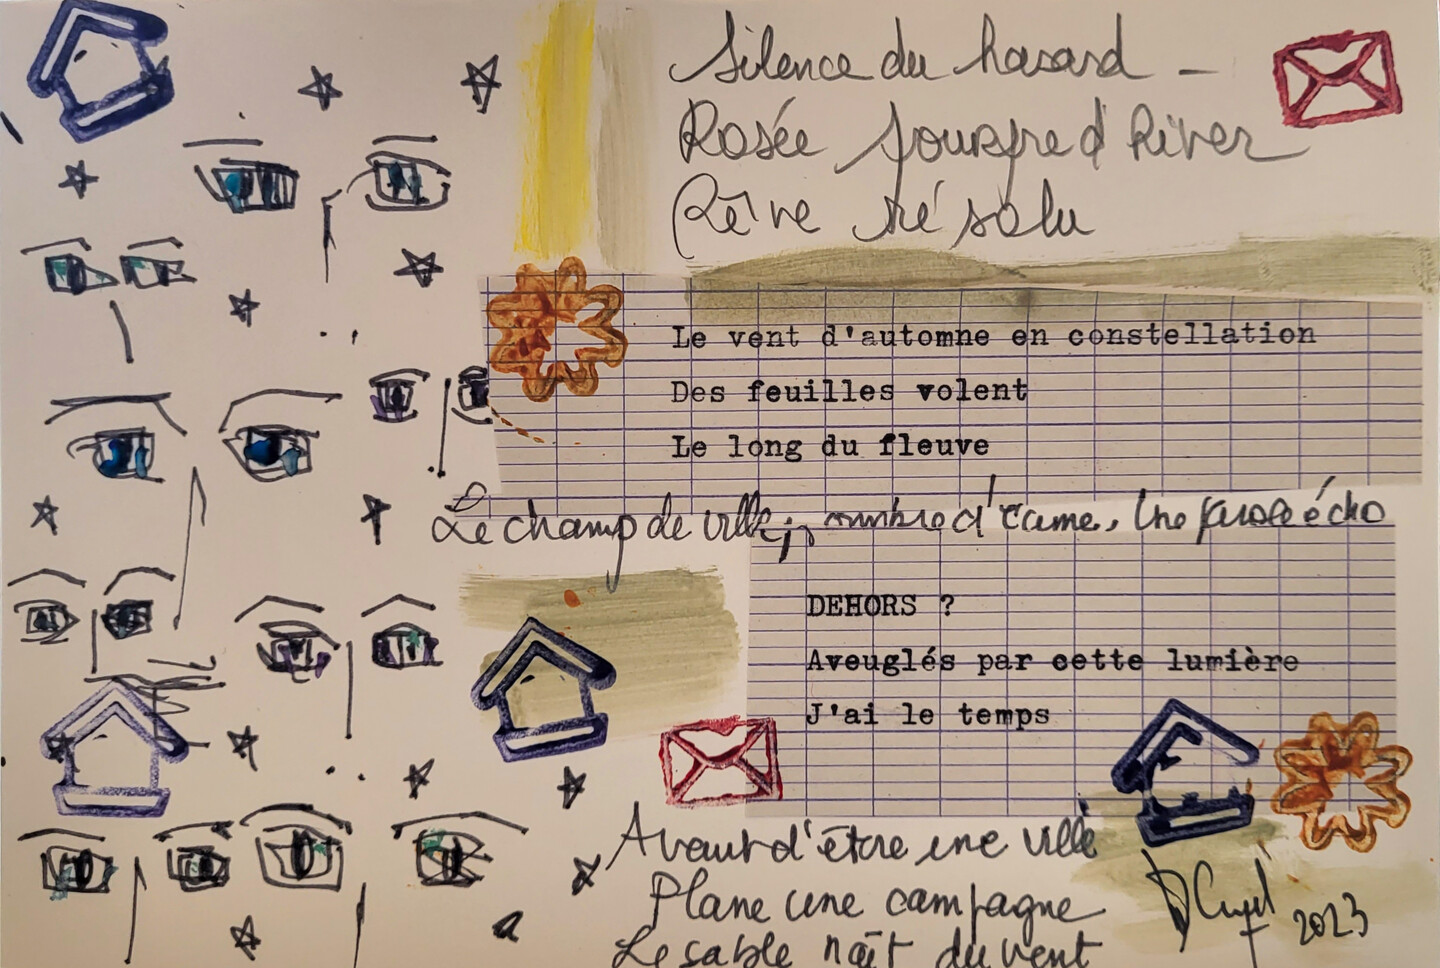 Silence du hasard -
Rosée soufre d'hiver
Rêve résolu
Le vent d'automne en constellation
Des feuilles volent
Le long du fleuve
Le champ de ville, d'âme, écho
DEHORS ?
Aveuglés par cette lumière
J'ai le temps
Avant d'être une ville
Plane une campagne
Le sable naît du vent
2023